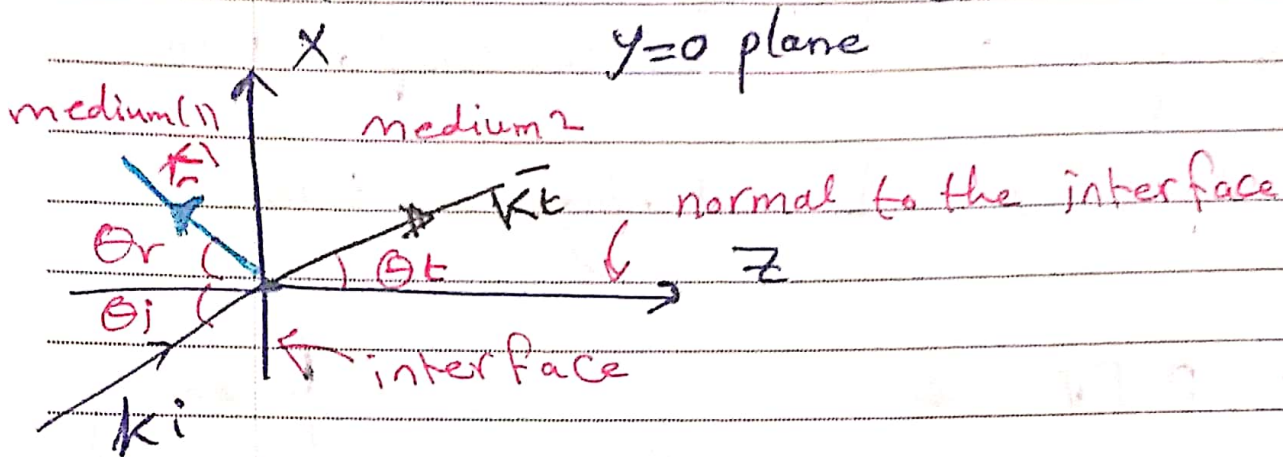 X y=0 plane
medium(1) medium2
K̄t normal to the interface
θr θt Z
θi
interface
ki